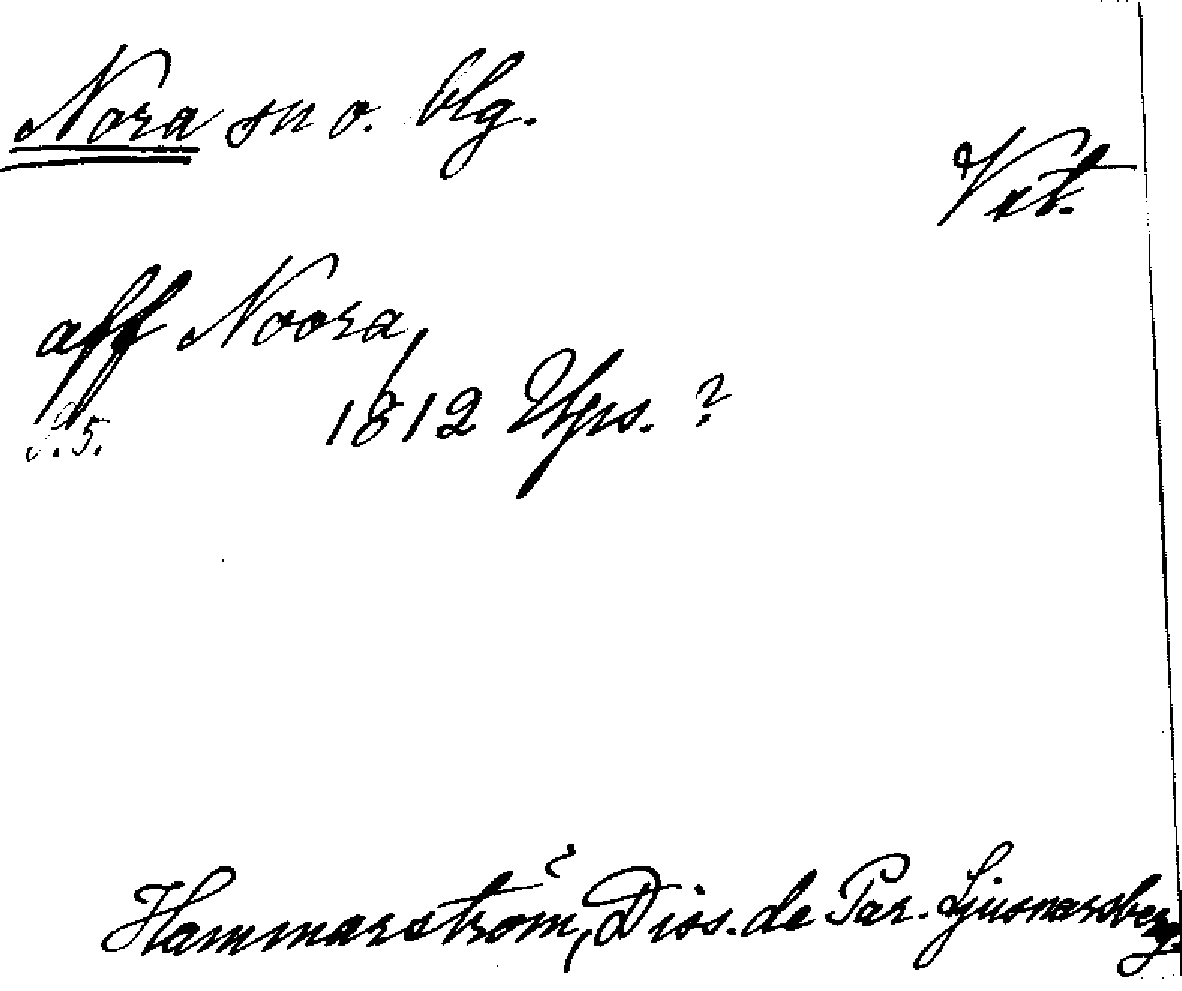 Nora sn o. blg.
Vet.
aff Noora,
s.5. 1812 Ups. ?
Hammarström, Diss. de Par. Ljusnarsberg.